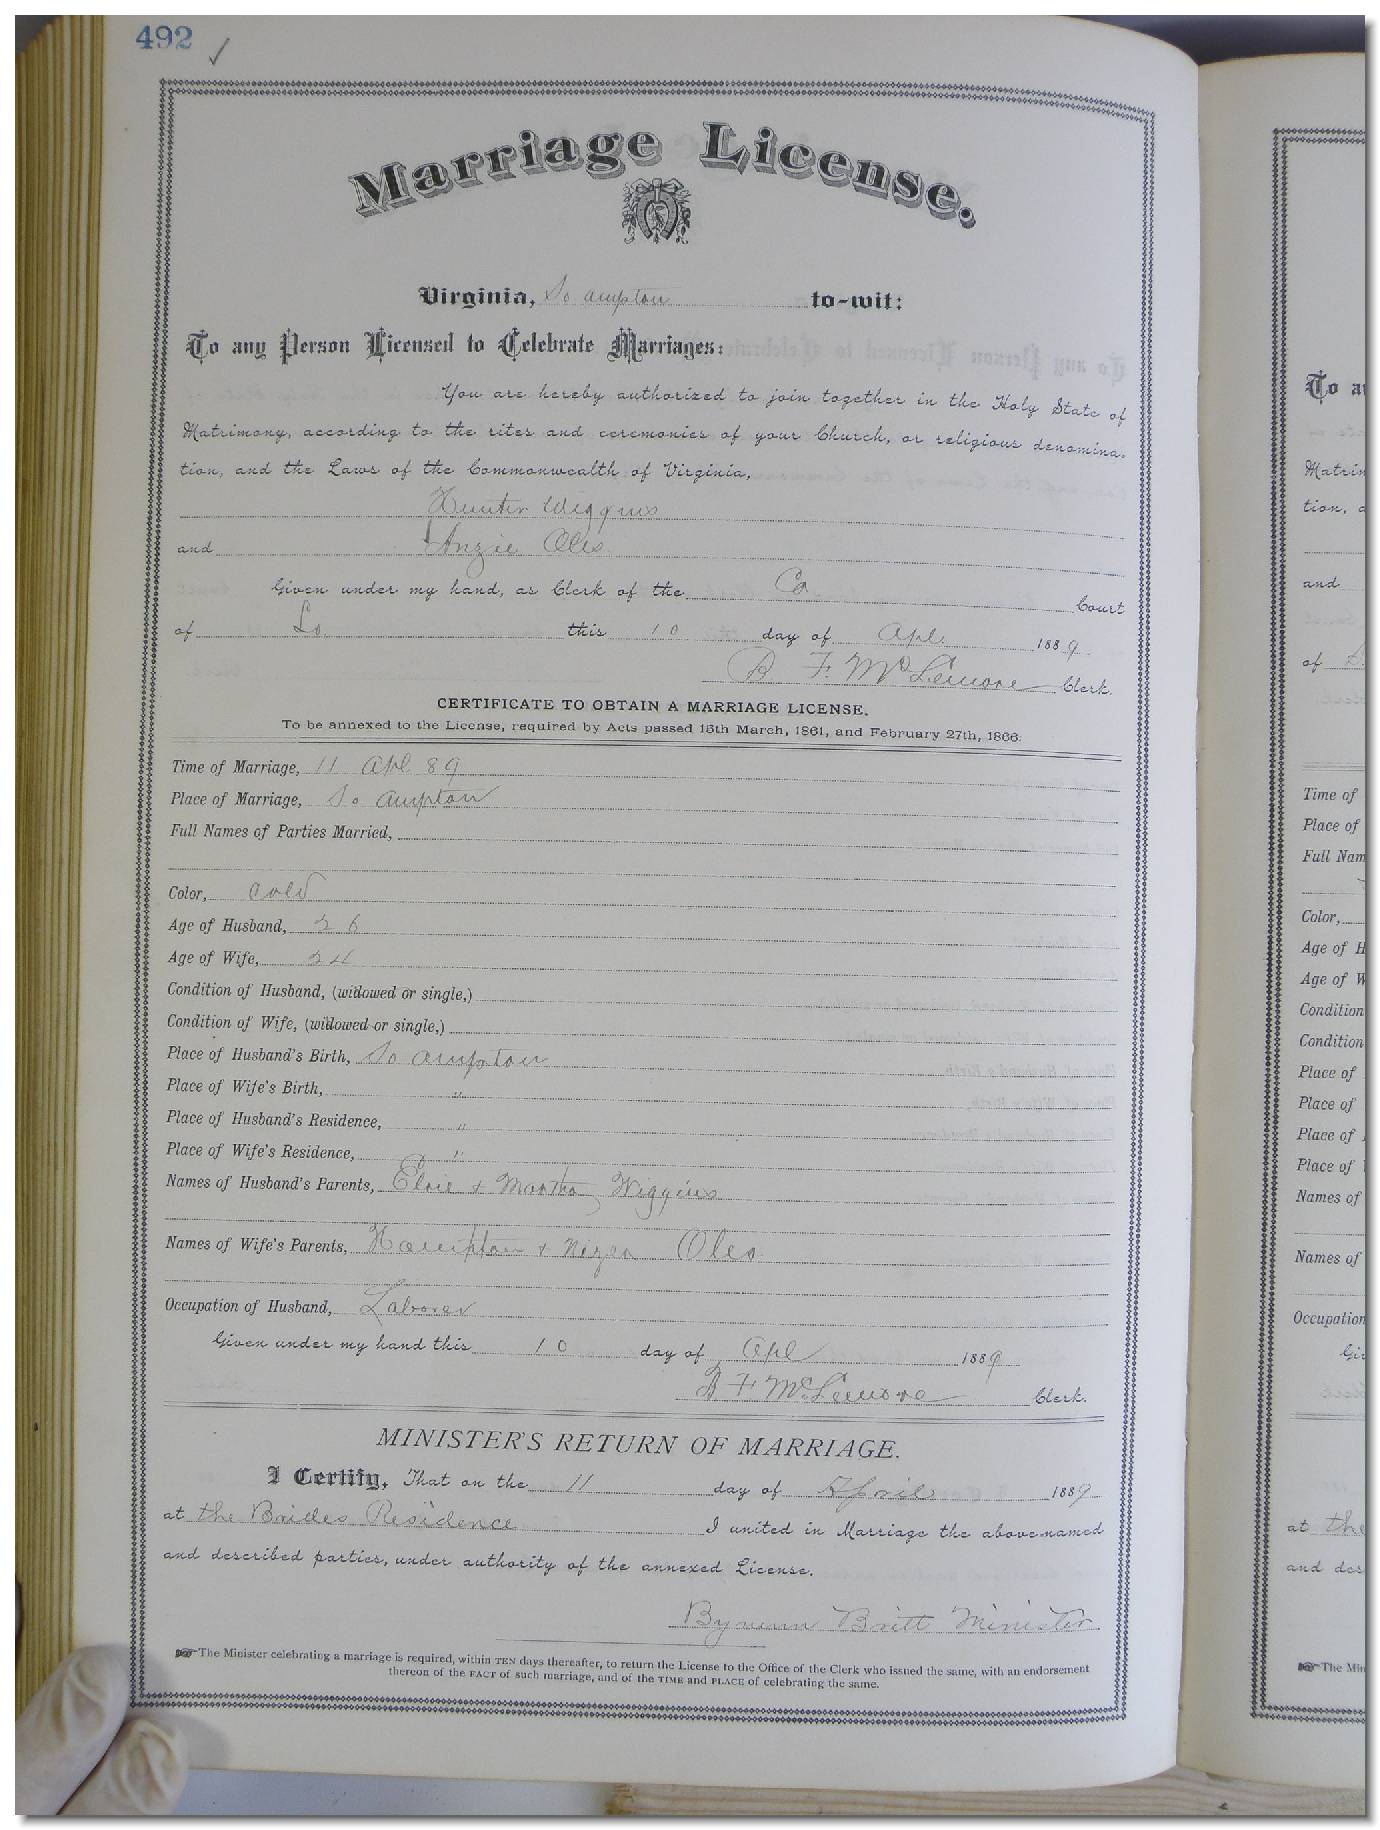 492 ✓
Marriage License.
Virginia, So ampton to-wit:
To any Person Licensed to Celebrate Marriages:
You are hereby authorized to join together in the Holy State of
Matrimony, according to the rites and ceremonies of your Church, or religious denomina-
tion, and the Laws of the Commonwealth of Virginia,
Hunter Wiggins
and Anzie Oles
Given under my hand, as Clerk of the Co Court
of So this 10 day of Apl 1889
B F McLemore Clerk.
CERTIFICATE TO OBTAIN A MARRIAGE LICENSE.
To be annexed to the License, required by Acts passed 15th March, 1861, and February 27th, 1866.
Time of Marriage, 11 Apl 89
Place of Marriage, So ampton
Full Names of Parties Married,
Color, Cold
Age of Husband, 26
Age of Wife, 24
Condition of Husband, (widowed or single,)
Condition of Wife, (widowed or single,)
Place of Husband's Birth, So ampton
Place of Wife's Birth, "
Place of Husband's Residence, "
Place of Wife's Residence, "
Names of Husband's Parents, & Martha Wiggins
Names of Wife's Parents, Hampton & Oles
Occupation of Husband, Laborer
Given under my hand this 10 day of Apl 1889
B F McLemore Clerk.
MINISTER'S RETURN OF MARRIAGE.
I Certify, That on the 11 day of April 1889
at the Brides Residence I united in Marriage the above-named
and described parties, under authority of the annexed License.
Britt Minister
The Minister celebrating a marriage is required, within TEN days thereafter, to return the License to the Office of the Clerk who issued the same, with an endorsement
thereon of the FACT of such marriage, and of the TIME and PLACE of celebrating the same.
To a
Matrim
tion,
and
of
Time of
Place of
Full Nam
Color,
Age of H
Age of W
Condition
Condition
Place of
Place of
Place of
Place of
Names of
Names of
Occupation
Gi
at the
and des
The Min